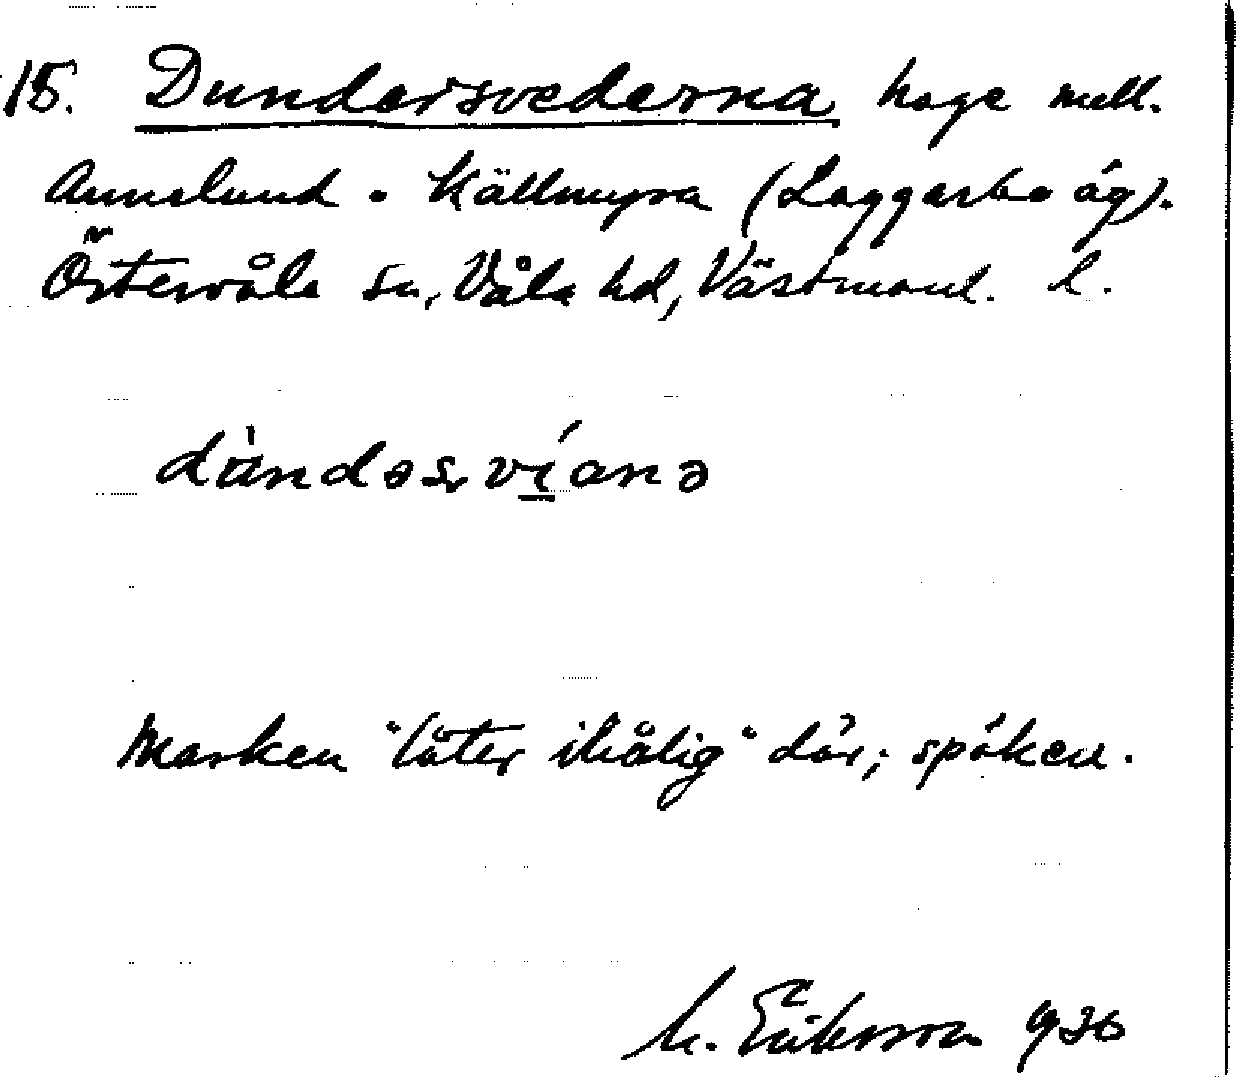 15. Dundersvederna hage mell.
Annelund o Källmyra (Laggarbo äg).
Östervåla sn, Våla hd, Västmanl. l.
dùndəsvíanə
Marken "låter ihålig" där; spöken.
M. Eriksson 1936